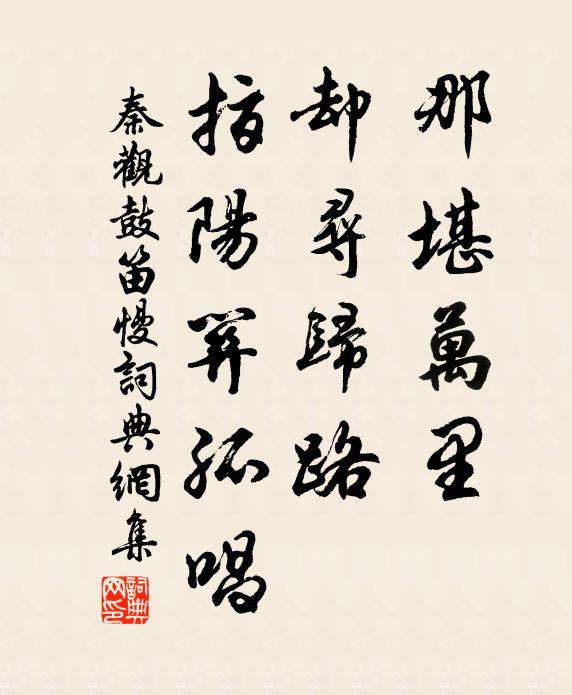 那堪萬里
却尋歸路
指陽関孤唱
秦觀鼓笛慢詞典網集
詞典網印